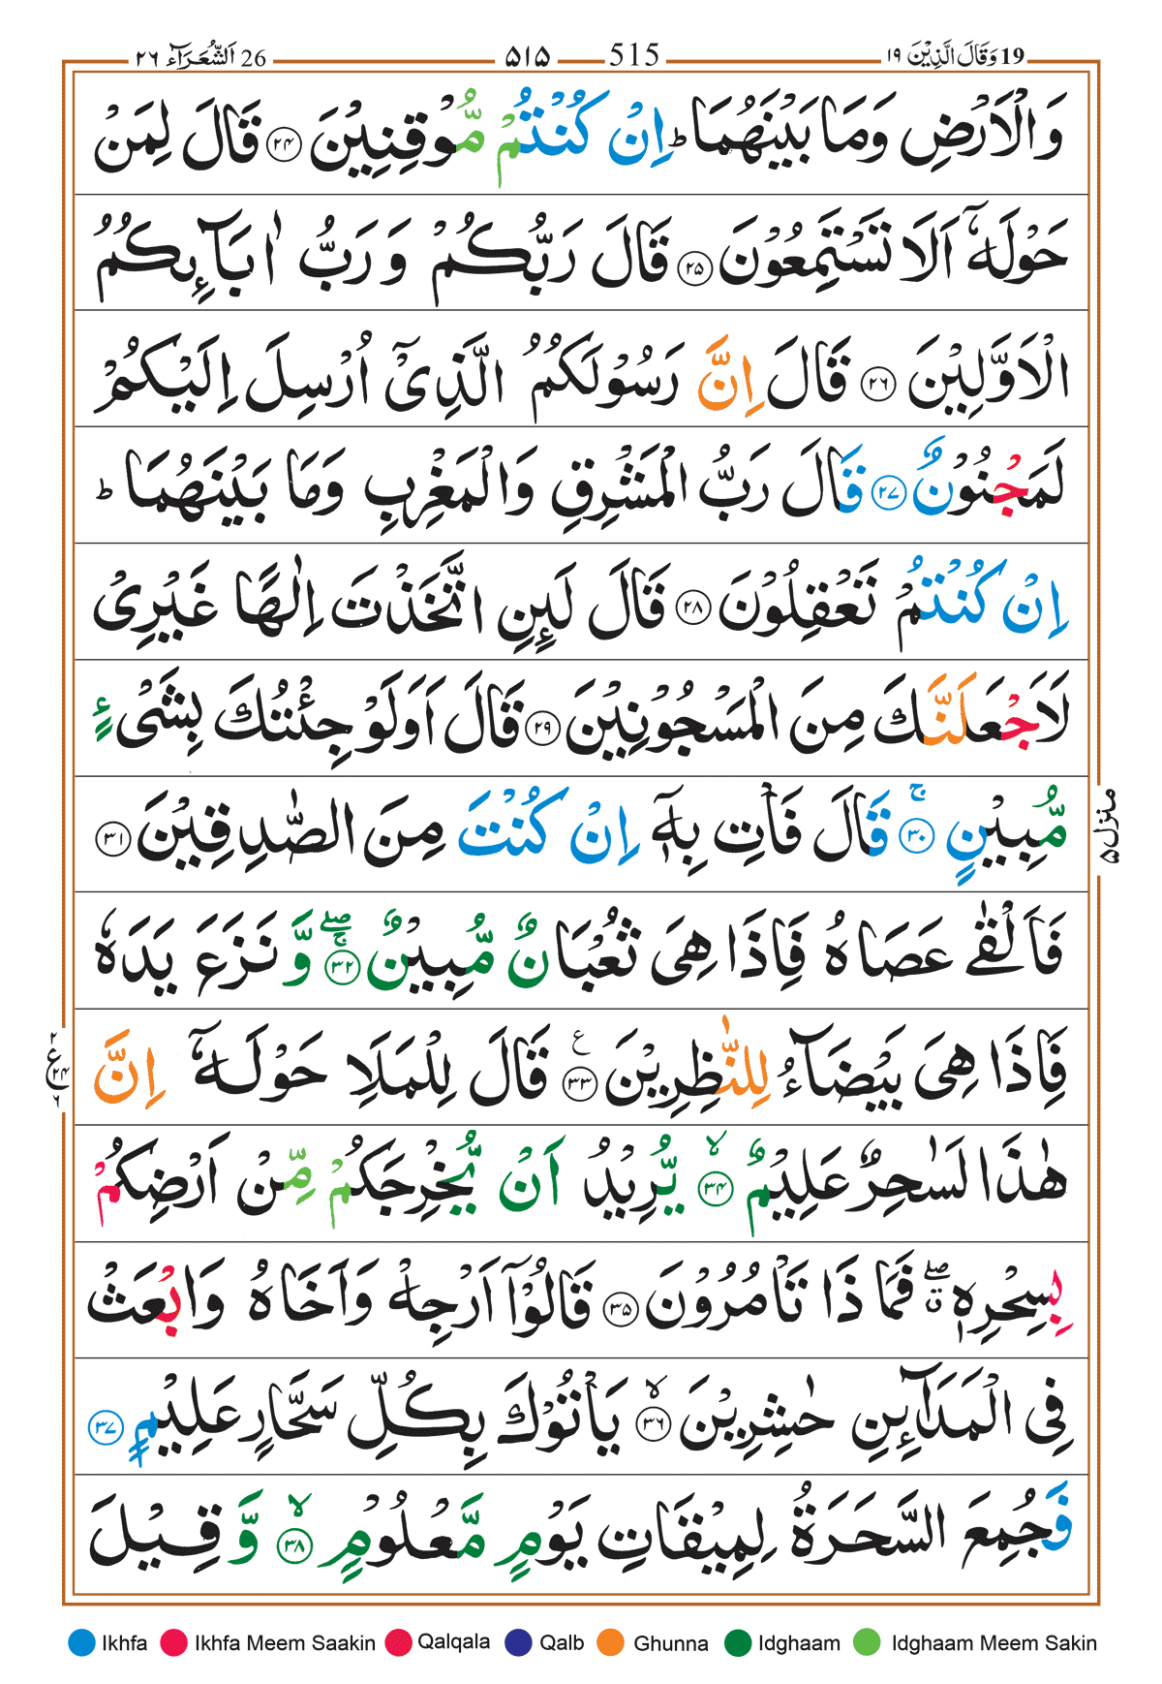 19 وَقَالَ الَّذِيْنَ ١٩ 515 ۵۱۵ 26 اَلشُّعَرَآء ٢٦
وَالْاَرْضِ وَمَا بَيْنَهُمَا ؕ اِنْ كُنْتُمْ مُّوْقِنِيْنَ ۲۴ قَالَ لِمَنْ
حَوْلَهٗۤ اَلَا تَسْتَمِعُوْنَ ۲۵ قَالَ رَبُّكُمْ وَ رَبُّ اٰبَآئِكُمُ
الْاَوَّلِيْنَ ۲۶ قَالَ اِنَّ رَسُوْلَكُمُ الَّذِىْۤ اُرْسِلَ اِلَيْكُمْ
لَمَجْنُوْنٌ ۲۷ قَالَ رَبُّ الْمَشْرِقِ وَالْمَغْرِبِ وَمَا بَيْنَهُمَا ؕ
اِنْ كُنْتُمْ تَعْقِلُوْنَ ۲۸ قَالَ لَئِنِ اتَّخَذْتَ اِلٰهًا غَيْرِىْ
لَاَجْعَلَنَّكَ مِنَ الْمَسْجُوْنِيْنَ ۲۹ قَالَ اَوَلَوْ جِئْتُكَ بِشَىْءٍ
مُّبِيْنٍ ۚ ۳۰ قَالَ فَاْتِ بِهٖۤ اِنْ كُنْتَ مِنَ الصّٰدِقِيْنَ ۳۱
فَاَلْقٰى عَصَاهُ فَاِذَا هِىَ ثُعْبَانٌ مُّبِيْنٌ ۚۖ ۳۲ وَّ نَزَعَ يَدَهٗ
فَاِذَا هِىَ بَيْضَآءُ لِلنّٰظِرِيْنَ ۳۳ ع قَالَ لِلْمَلَاِ حَوْلَهٗۤ اِنَّ
هٰذَا لَسٰحِرٌ عَلِيْمٌ ۙ ۳۴ يُّرِيْدُ اَنْ يُّخْرِجَكُمْ مِّنْ اَرْضِكُمْ
بِسِحْرِهٖ ۖ ق فَمَا ذَا تَاْمُرُوْنَ ۳۵ قَالُوْۤا اَرْجِهْ وَاَخَاهُ وَابْعَثْ
فِى الْمَدَآئِنِ حٰشِرِيْنَ ۙ ۳۶ يَاْتُوْكَ بِكُلِّ سَحَّارٍ عَلِيْمٍ ۳۷
فَجُمِعَ السَّحَرَةُ لِمِيْقَاتِ يَوْمٍ مَّعْلُوْمٍ ۙ ۳۸ وَّ قِيْلَ
منزل ۵
۲ ع ۲۴ ۶
Ikhfa Ikhfa Meem Saakin Qalqala Qalb Ghunna Idghaam Idghaam Meem Sakin